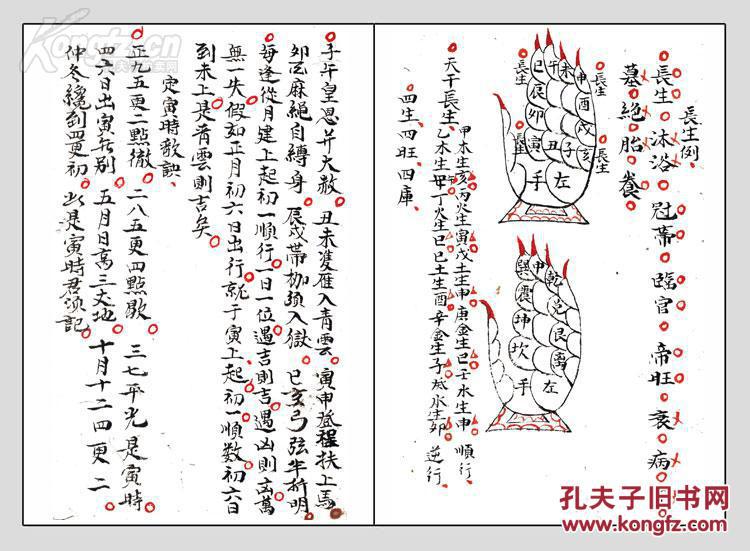 長生例
長生 沐浴 冠帶 臨官 帝旺 衰 病
墓 絕 胎 養
長生
長生
長生
長生
巳午未申
辰酉
卯戌
寅丑子亥
左手
巽 申 乾
震 兌
坤 艮
坎 離
左手
天干長生
甲木生亥 丙火生寅 戊土生申 庚金生巳 壬水生申 順行
乙水生午 丁火生巳 巳土生酉 辛金生子 癸水生卯 逆行
四生四旺四庫
子午皇恩并大赦 丑未雙雁入青雲 寅申登程扶上馬
卯酉麻繩自縛身 辰戌帶枷頭入獄 巳亥弓弦半折明
每逢從月建上起初一順行一日一位遇吉則吉遇凶則凶萬
無一失假如正月初六日出行就于寅上起初一順數初六日
到未上是青雲則吉矣
定寅時歌訣
正九五更二點徹 二八五更四點歇 三七平光是寅時
四六日出寅無別 五月日高三丈地 十月十二四更二
仲冬纔到四更初 此是寅時君須記
孔夫子旧书网
www.kongfz.com